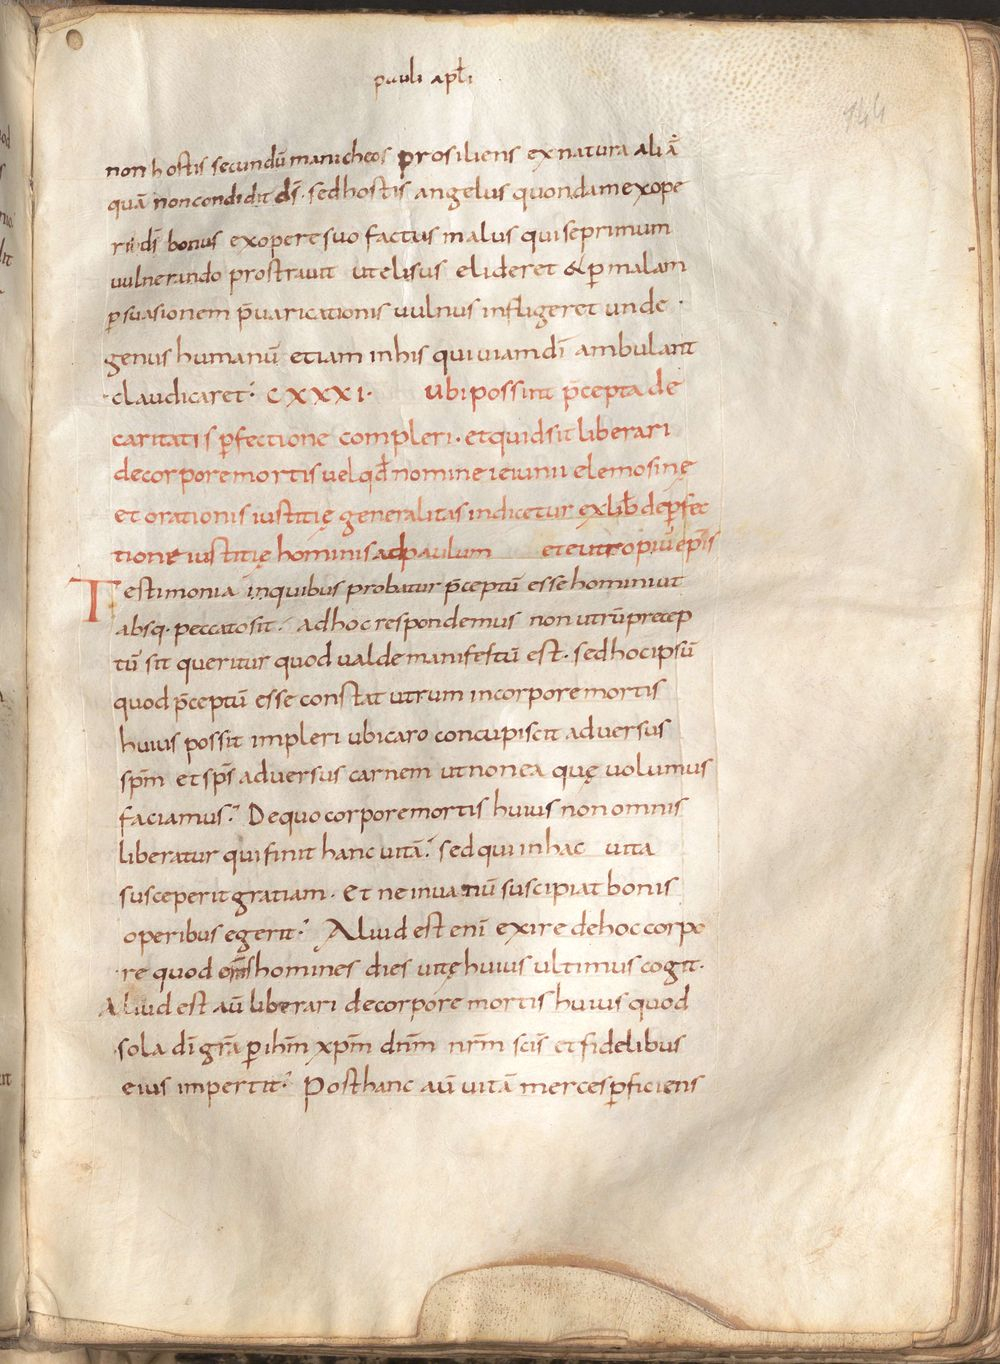 pauli apłi
144
non hostis secundū manicheos prosiliens ex natura aliā
quā non condidit ds̄. sed hostis angelus quondam ex ope
ris dī bonus ex opere suo factus malus qui se primum
uulnerando prostrauit ut elisus elideret & p̲ malam
p̲suasionem p̄uaricationis uulnus infligeret unde ·
genus humanū etiam in his qui uiam dī ambulant
claudicaret. CXXXI. Ubi possint p̄cepta de
caritatis p̲fectione compleri. et quid sit liberari
de corpore mortis uel qđ nomine ieiunii elemosinę
et orationis iustitię generalitas indicetur ex lib̄ de p̲fec
tione iustitię hominis ad paulum et eutropiū ep̄is
Testimonia in quibus probatur p̄ceptū esse homini ut
absq. peccato sit. ad hoc respondemus non utrū precep
tū sit queritur quod ualde manifestū est. sed hoc ipsū
quod p̄ceptū esse constat utrum in corpore mortis
huius possit impleri ubi caro concupiscit aduersus
spm̄ et sps̄ aduersus carnem ut non ea quę uolumus
faciamus. De quo corpore mortis huius non omnis
liberatur qui finit hanc uitā. sed qui in hac uita
susceperit gratiam. Et ne in uanū suscipiat bonis
operibus egerit. Aliud est enī exire de hoc corpo
re quod oms̄ homines dies uitę huius ultimus cogit.
Aliud est aū liberari de corpore mortis huius quod
sola dī grā p̲ ihm̄ xpm̄ dnm̄ nrm̄ scīs et fidelibus
eius impertit. Post hanc aū uitā merces p̲ficiens